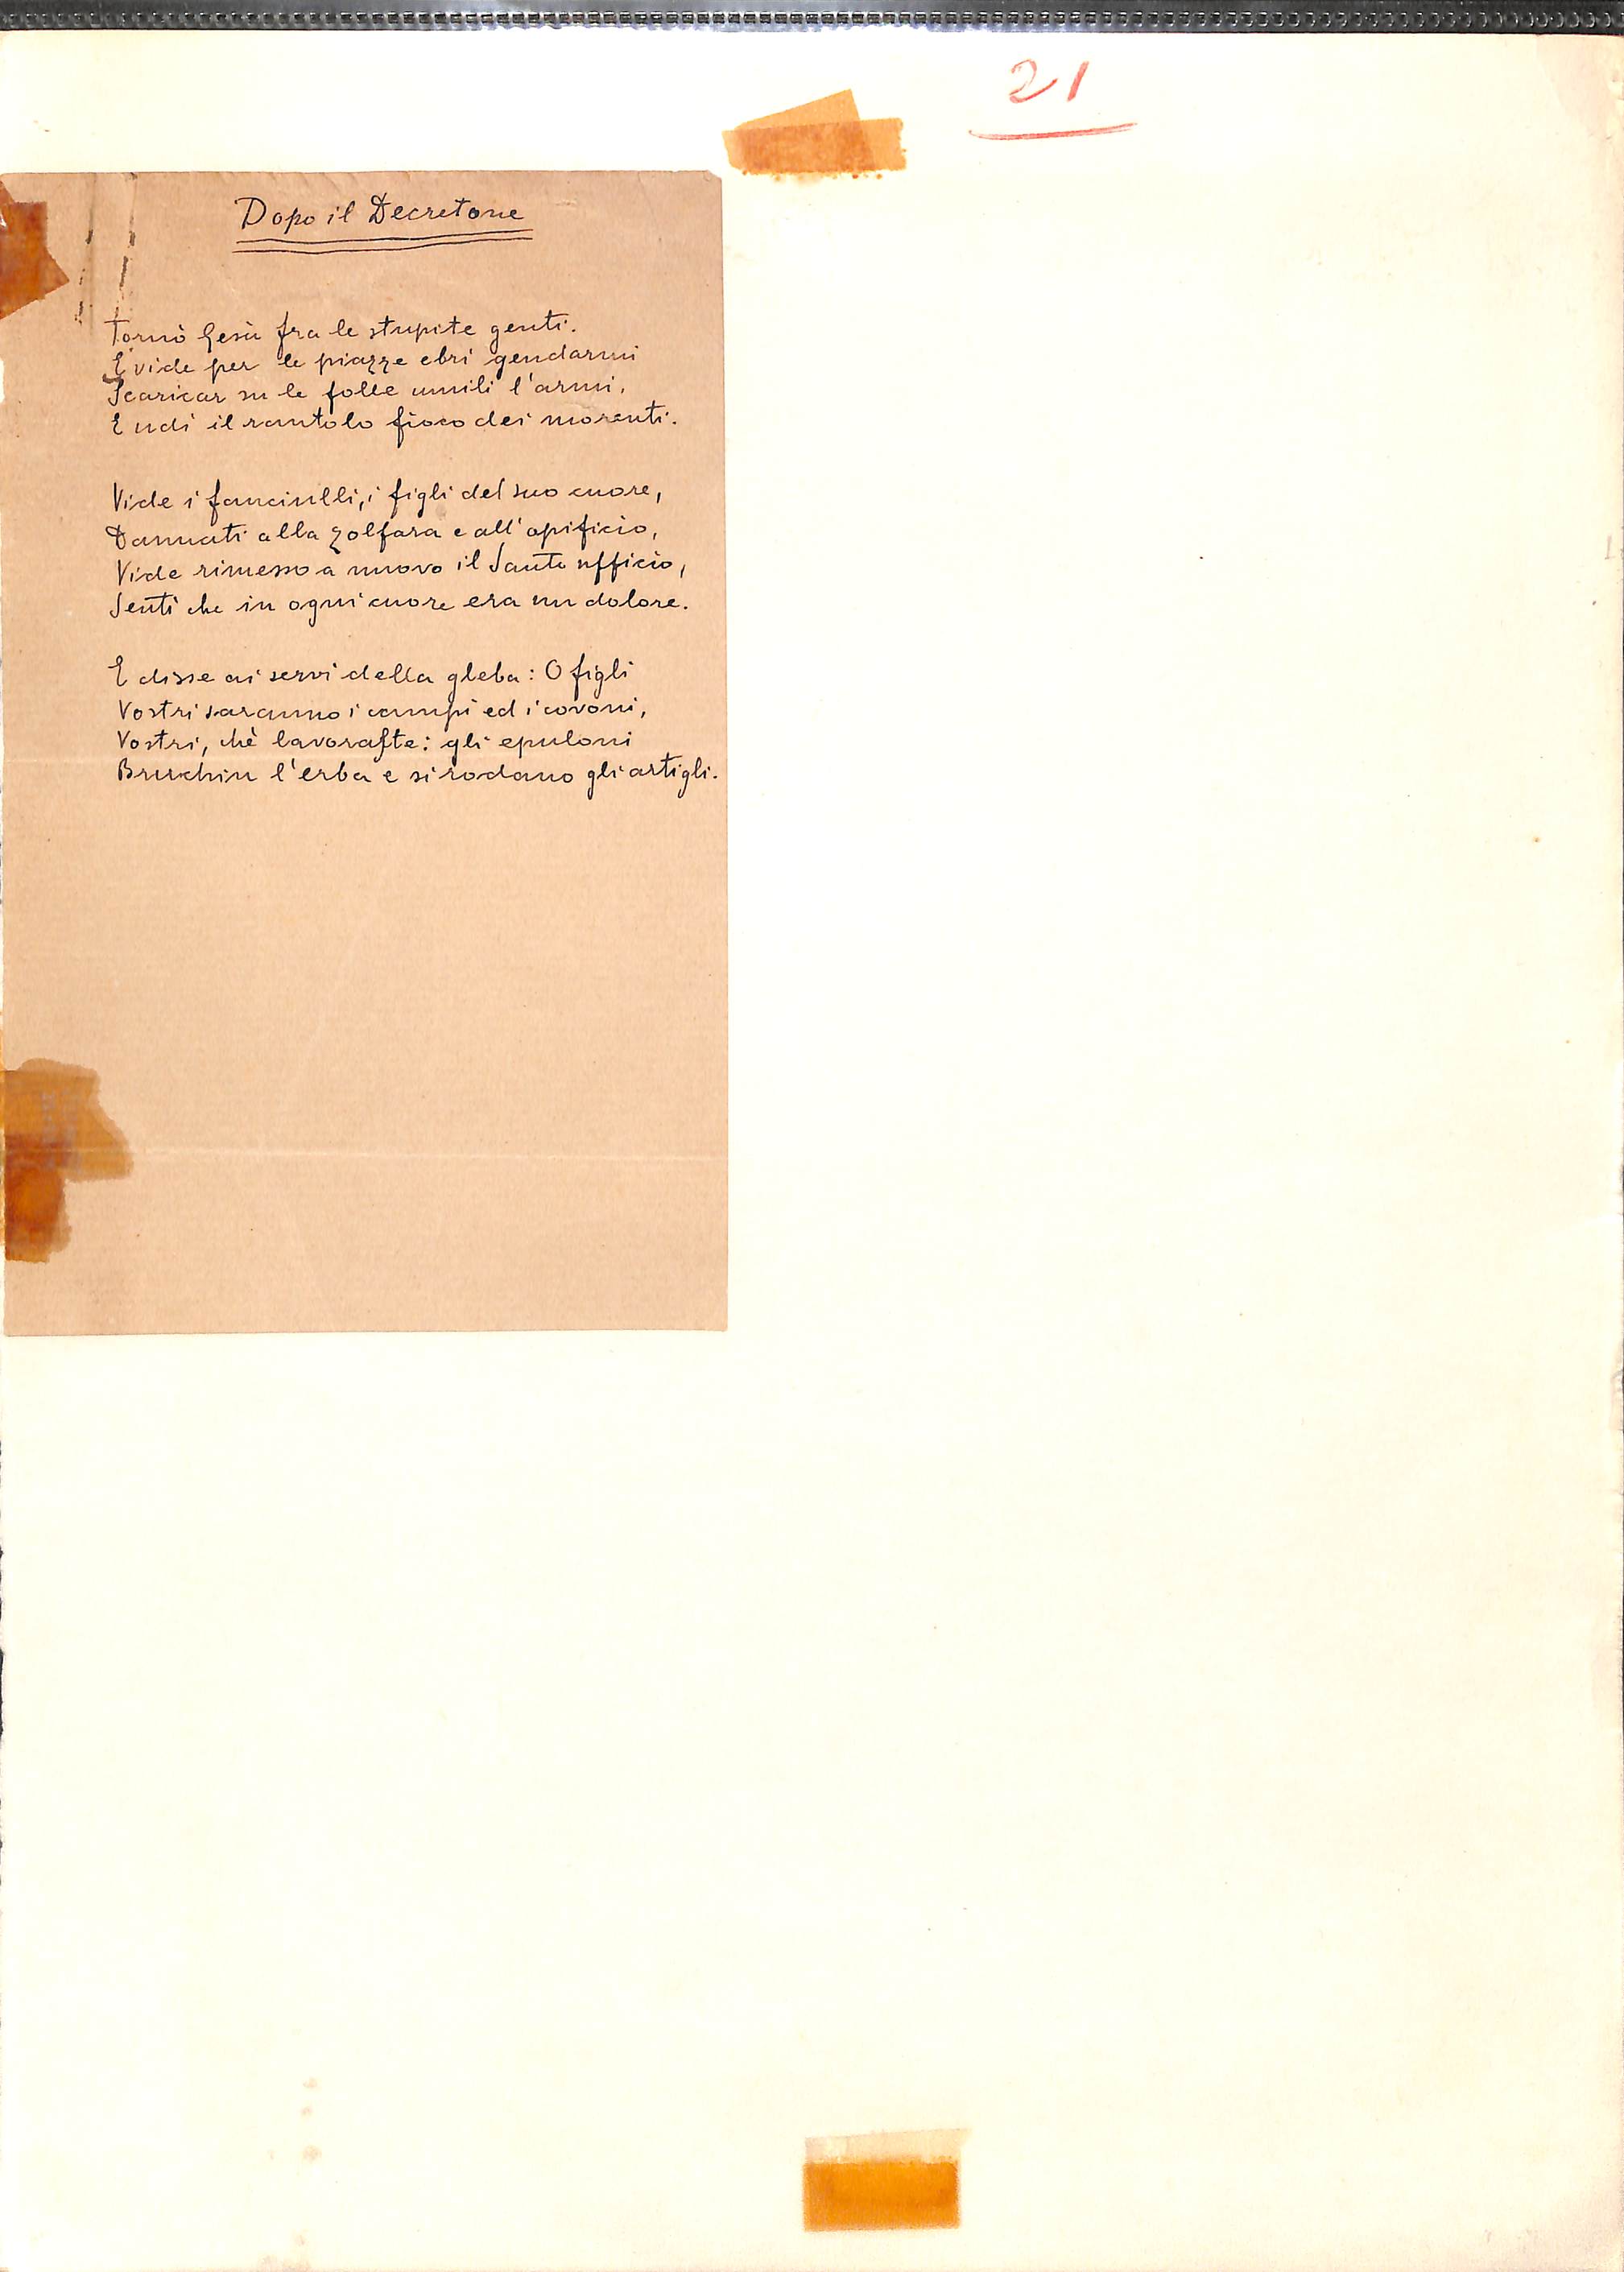 21
Dopo il Decretone
Tornò Gesù fra le stupite genti.
E vide per le piazze ebri gendarmi
Scaricar su le folle umili l'armi,
E udì il rantolo fioco dei morenti.
Vide i fanciulli, i figli del suo cuore,
Dannati alla zolfara e all'opificio,
Vide rimesso a nuovo il Santo ufficio,
Sentì che in ogni cuore era un dolore.
E disse ai servi della gleba: O figli
Vostri saranno i campi ed i covoni,
Vostri, chè lavorafte: gli epuloni
Bruchin l'erba e si rodano gli artigli.